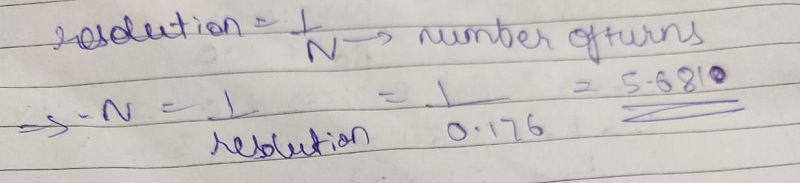 resolution = 1/N → number of turns
⇒ - N = 1/resolution = 1/0.176 = 5.6810